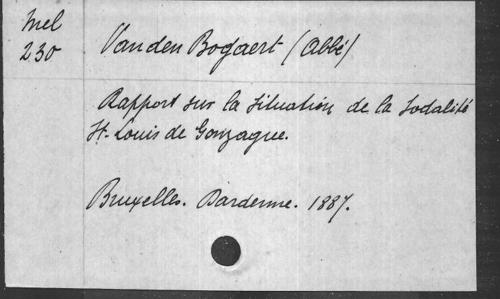 Mel
230
Vanden Bogaert (Abbé)
Rapport sur la situation de la Sodalité
St. Louis de Gonzague.
Bruxelles. Larderme. 1887.